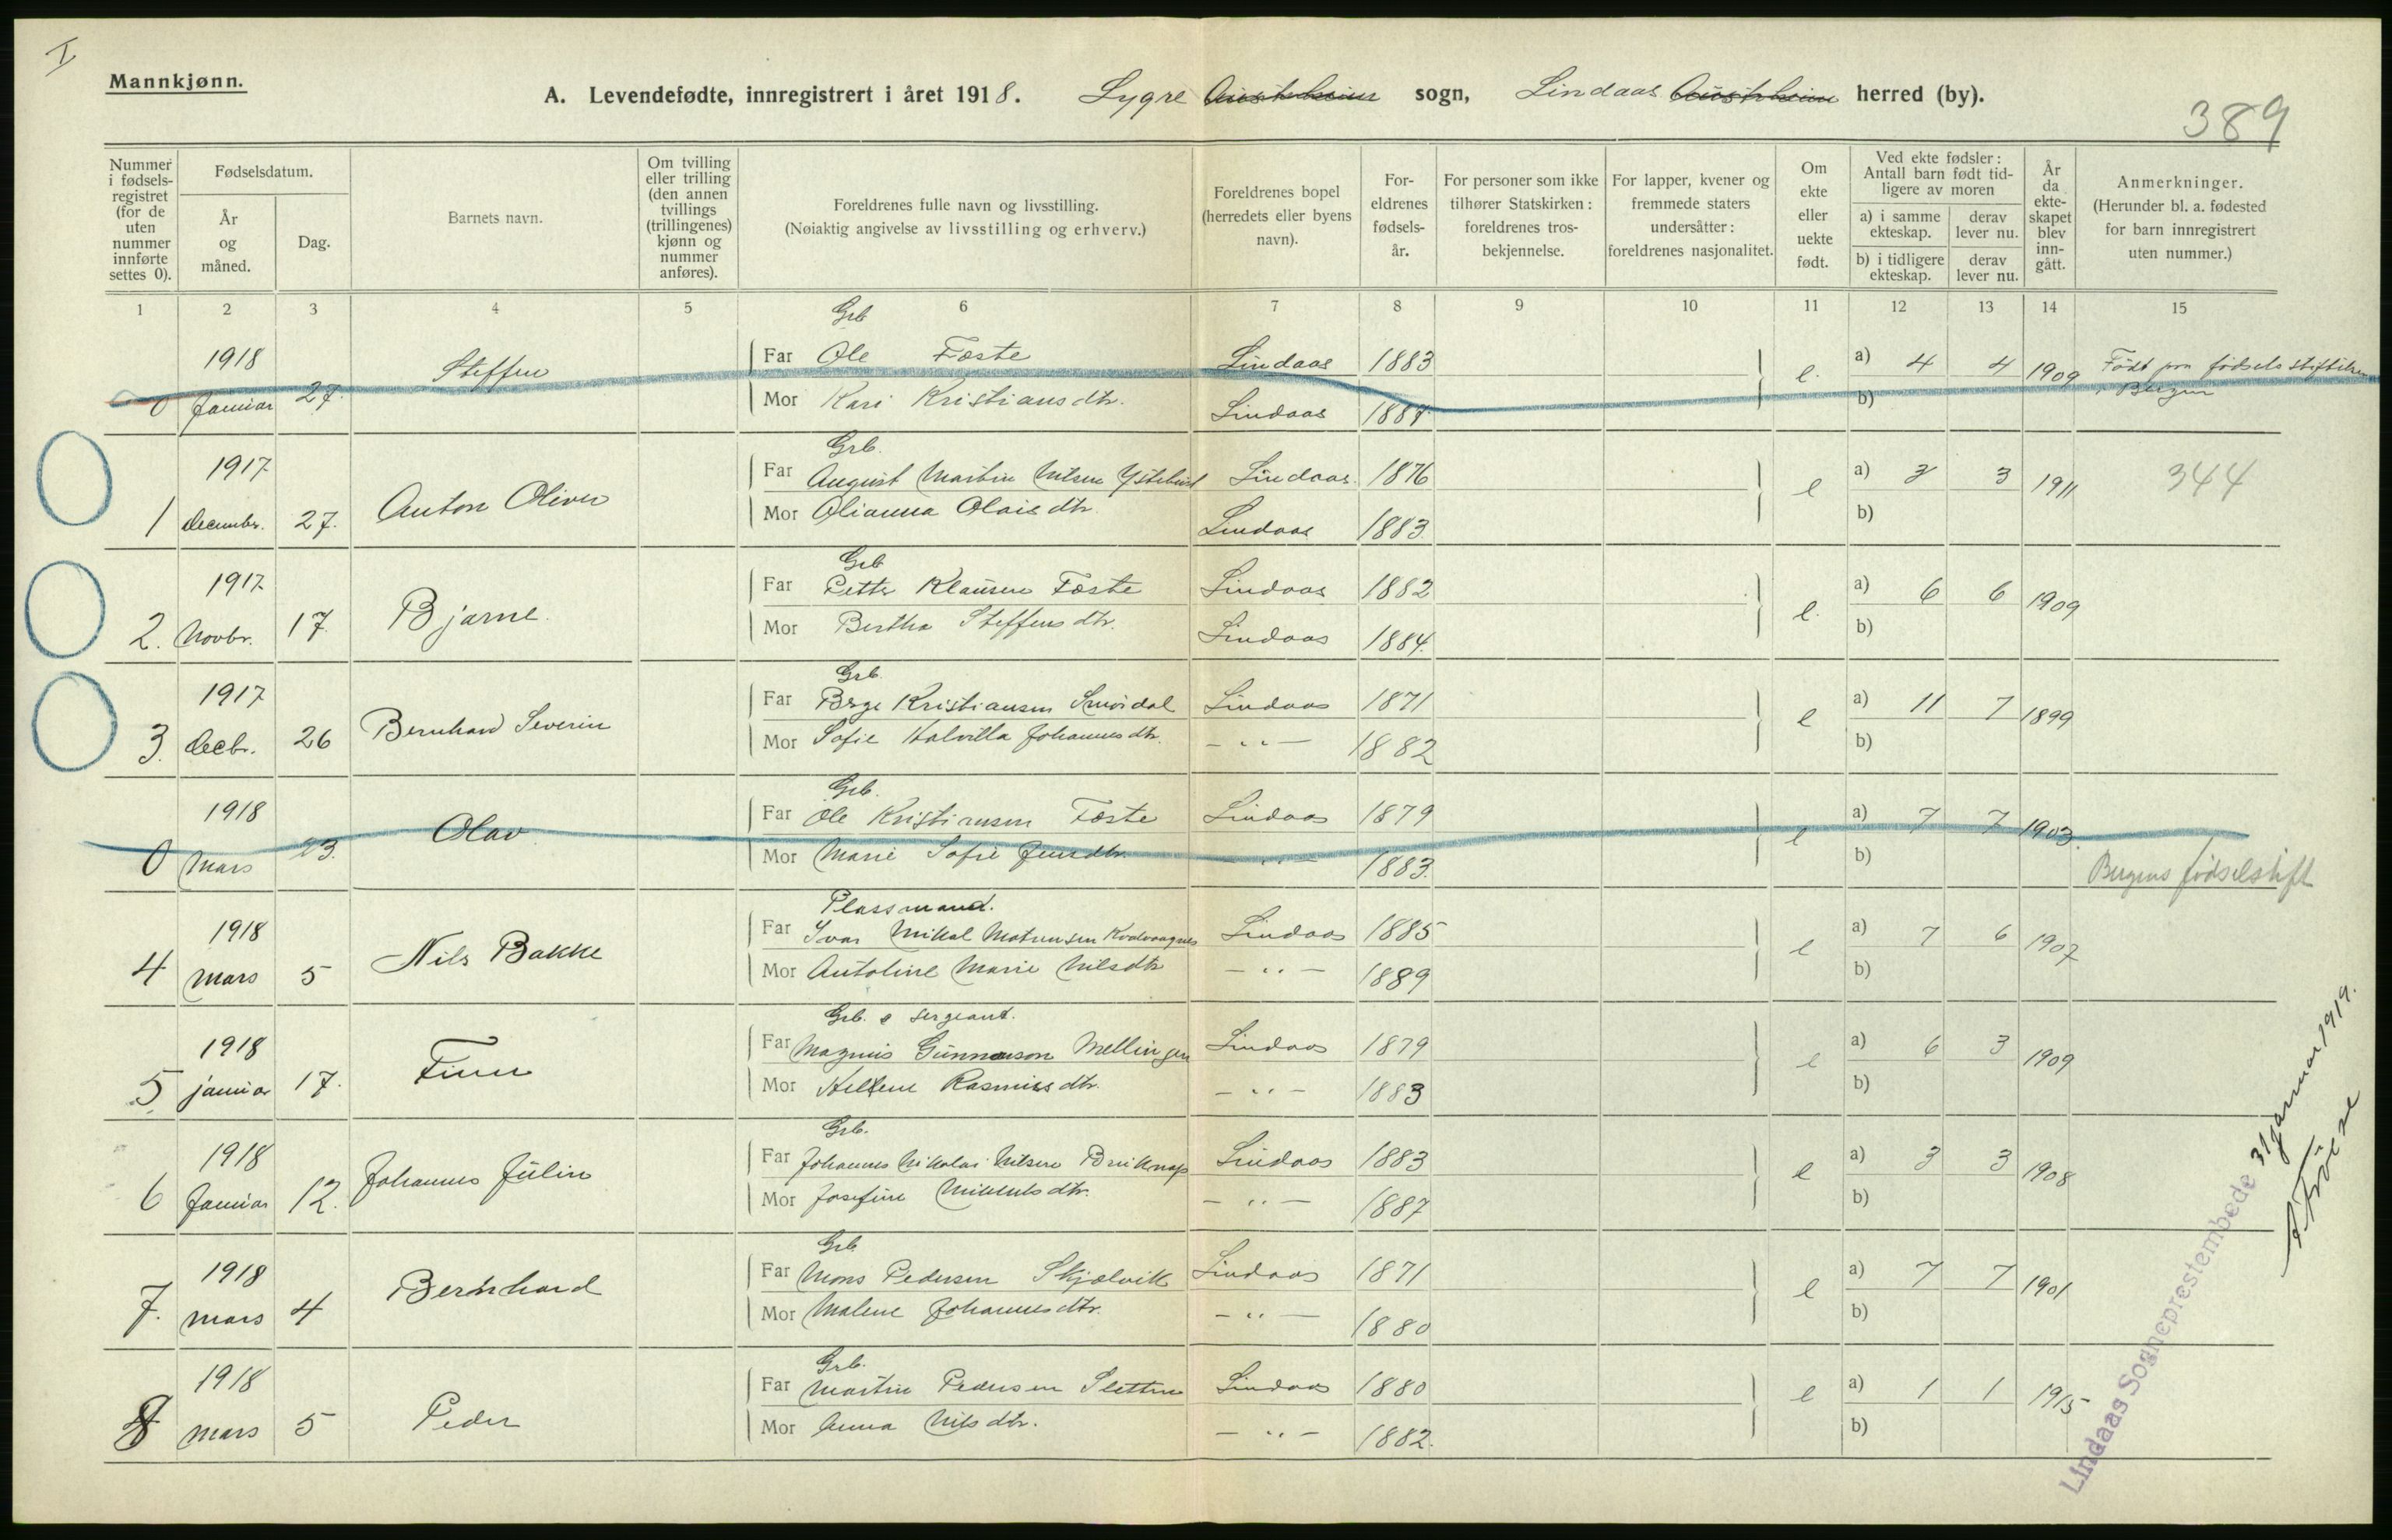 I
Mannkjønn.
A. Levendefødte, innregistrert i året 1918. Lygre Austrheim sogn, Lindaas Austrheim herred (by).
389
Nummer i fødselsregistret (for de uten nummer innførte settes 0).
Fødselsdatum.
År og måned.
Dag.
Barnets navn.
Om tvilling eller trilling (den annen tvillings (trillingenes) kjønn og nummer anføres).
Foreldrenes fulle navn og livsstilling.
(Nøiaktig angivelse av livsstilling og erhverv.)
Foreldrenes bopel (herredets eller byens navn).
Foreldrenes fødselsår.
For personer som ikke tilhører Statskirken: foreldrenes trosbekjennelse.
For lapper, kvener og fremmede staters undersåtter: foreldrenes nasjonalitet.
Om ekte eller uekte født.
Ved ekte fødsler: Antall barn født tidligere av moren
a) i samme ekteskap.
derav lever nu.
b) i tidligere ekteskap.
derav lever nu.
År da ekteskapet blev inngått.
Anmerkninger.
(Herunder bl. a. fødested for barn innregistrert uten nummer.)
1 2 3 4 5 6 7 8 9 10 11 12 13 14 15
Grb
1918 Steffen Far Ole Foste Lindaas 1883 e. a) 4 4 1909 Född paa fødselsstiftelsen
0 Januar 27. Mor Kari Kristiansdtr. Lindaas 1887 b) i Bergen
Grb.
1917 Anton Oliver Far August Martin Nilsen Ystebust Lindaas 1876 e a) 3 3 1911 344
1 decembr. 27. Mor Olianna Olaisdtr. Lindaas 1883 b)
Grb
1917 Bjarne. Far Petter Klausen Foste Lindaas 1882 e. a) 6 6 1909
2. Novbr. 17. Mor Bertha Steffensdtr. Lindaas 1884. b)
Grb.
1917 Bernhard Severin Far Berge Kristiansen Smördal Lindaas 1871 e a) 11 7 1899
3. decbr. 26 Mor Sofie Halvilla Johannesdtr. - " - 1882 b)
Grb.
1918 Olav Far Ole Kristiansen Foste Lindaas 1879 e a) 7 7 1903.
0 Mars 23. Mor Marie Sofie Jensdtr. - " - 1883. b) Bergens fødselstift
Plassmand.
1918 Nils Bakke Far Ivar Mikal Martinsen Kvalvaagnes Lindaas 1885 e a) 7 6 1907
4 Mars 5 Mor Antoline Marie Nilsdtr - " - 1889 b)
Grb. & sergeant.
1918 Finn Far Magnus Gunnarson Mellingen Lindaas 1879 e a) 6 3 1909
5 januar 17. Mor Hellene Rasmusdtr. - " - 1883 b)
Grb.
1918 Johannes Julin Far Johannes Nikolai Nilsen Bruknap Lindaas 1883 e a) 3 3 1908
6 Januar 12. Mor Josefine Mikkelsdtr. - " - 1887 b)
Grb
1918 Bernhard Far Mons Pedersen Skjelvik Lindaas 1871 e a) 7 7 1901
7. mars 4 Mor Malene Johannesdtr. - " - 1880 b)
Grb.
1918 Peder Far Martin Pedersen Sletten Lindaas 1880 e a) 1 1 1915
8 mars 5 Mor Anna Nilsdtr. - " - 1882. b)
Lindaas Sogneprestembede 31 januar 1919.